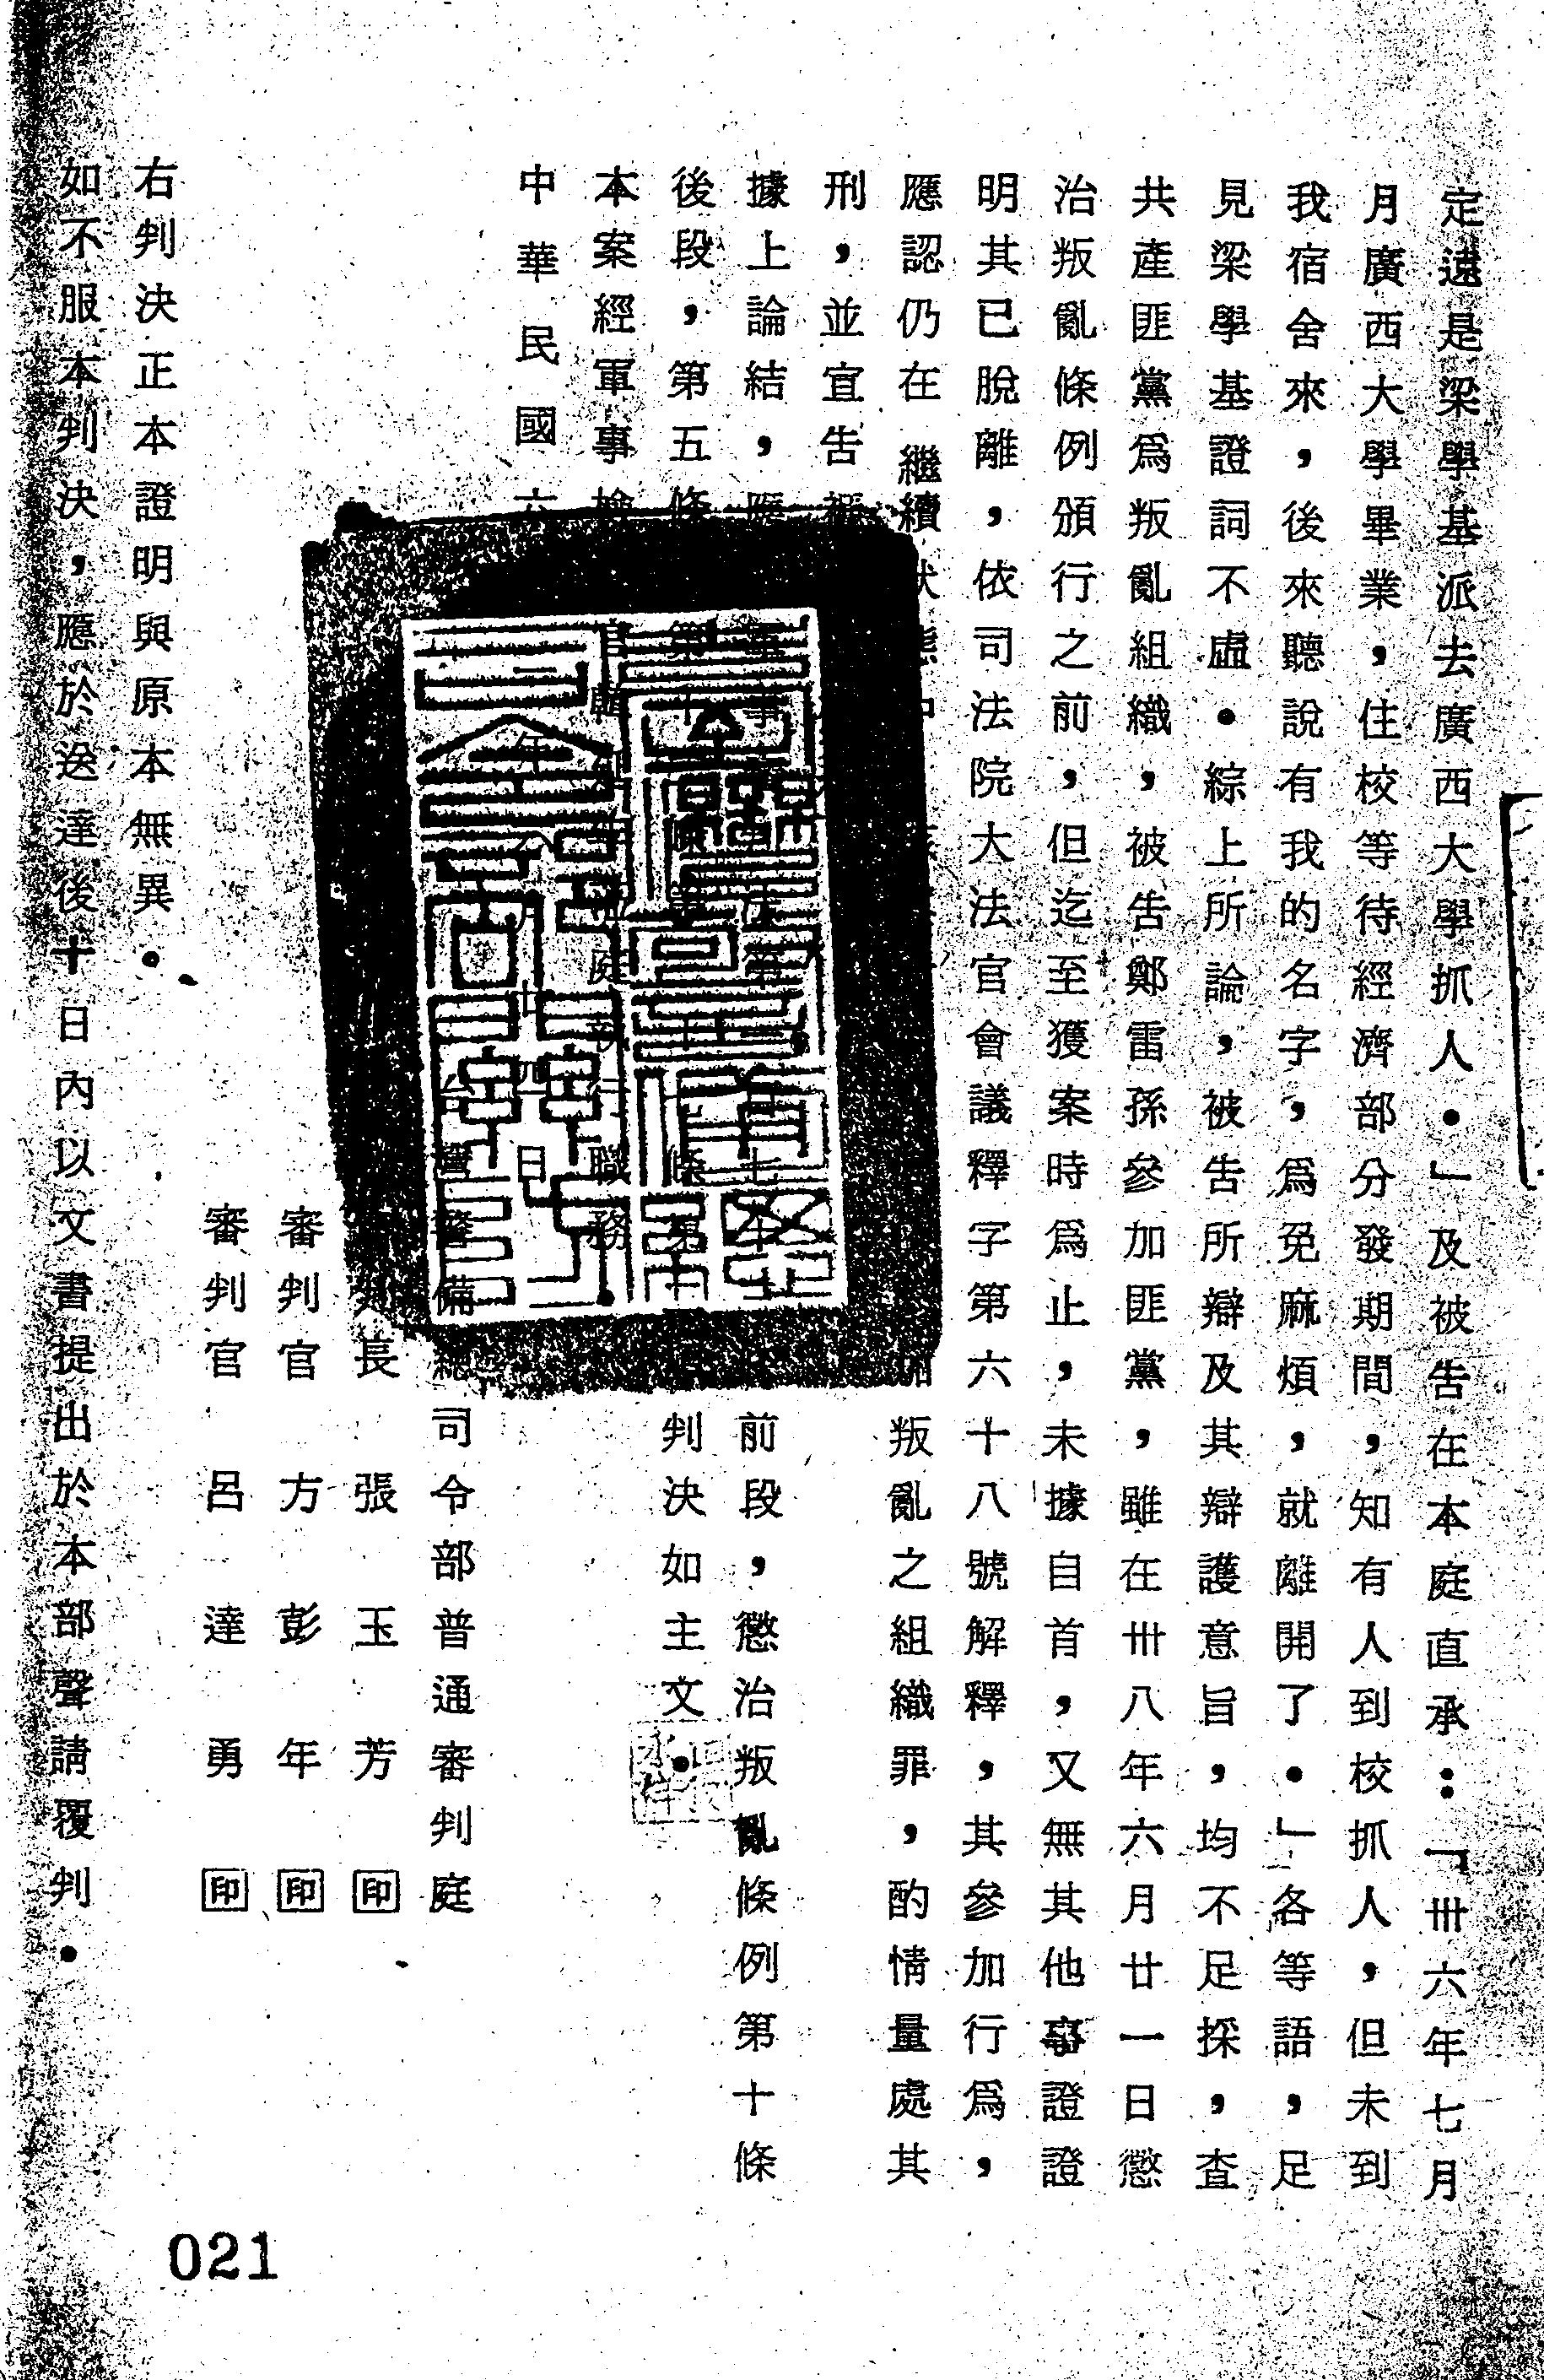 定遠是梁學基派去廣西大學抓人・」及被告在本庭直承：「卅六年七月
月廣西大學畢業，住校等待經濟部分發期間，知有人到校抓人，但未到
我宿舍來，後來聽說有我的名字，為免麻煩，就離開了・」各等語，足
見梁學基證詞不虛・綜上所論，被告所辯及其辯護意旨，均不足採，查
共產匪黨為叛亂組織，被告鄭雷孫參加匪黨，雖在卅八年六月廿一日懲
治叛亂條例頒行之前，但迄至獲案時為止，未據自首，又無其他事證證
明其已脫離，依司法院大法官會議釋字第六十八號解釋，其參加行為，
應認仍在繼續狀態中 叛亂之組織罪，酌情量處其
刑，並宜告褫
據上論結，應 前段，懲治叛亂條例第十條
後段，第五條 判決如主文・
本案經軍事檢 官 庭執行職務・
中華民國六 年 月廿四日
台灣警備總司令部普通審判庭
審判長 張玉芳 印
審判官 方彭年 印
審判官 呂達勇 印
右判決正本證明與原本無異・
如不服本判決，應於送達後十日內以文書提出於本部聲請覆判・
021